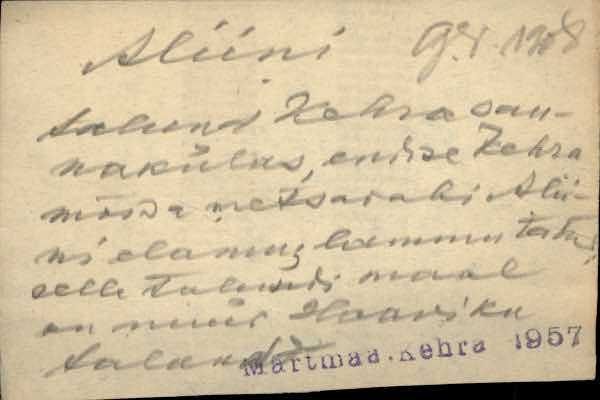 Aliini
talund Kehra sau-
nakülas, endise Kehra
mõisa metsavahi Alii-
ni elamu, lammutatud,
selle talundi maal
on nüüd Haaviku
talund
Märtmaa. Kehra 1957